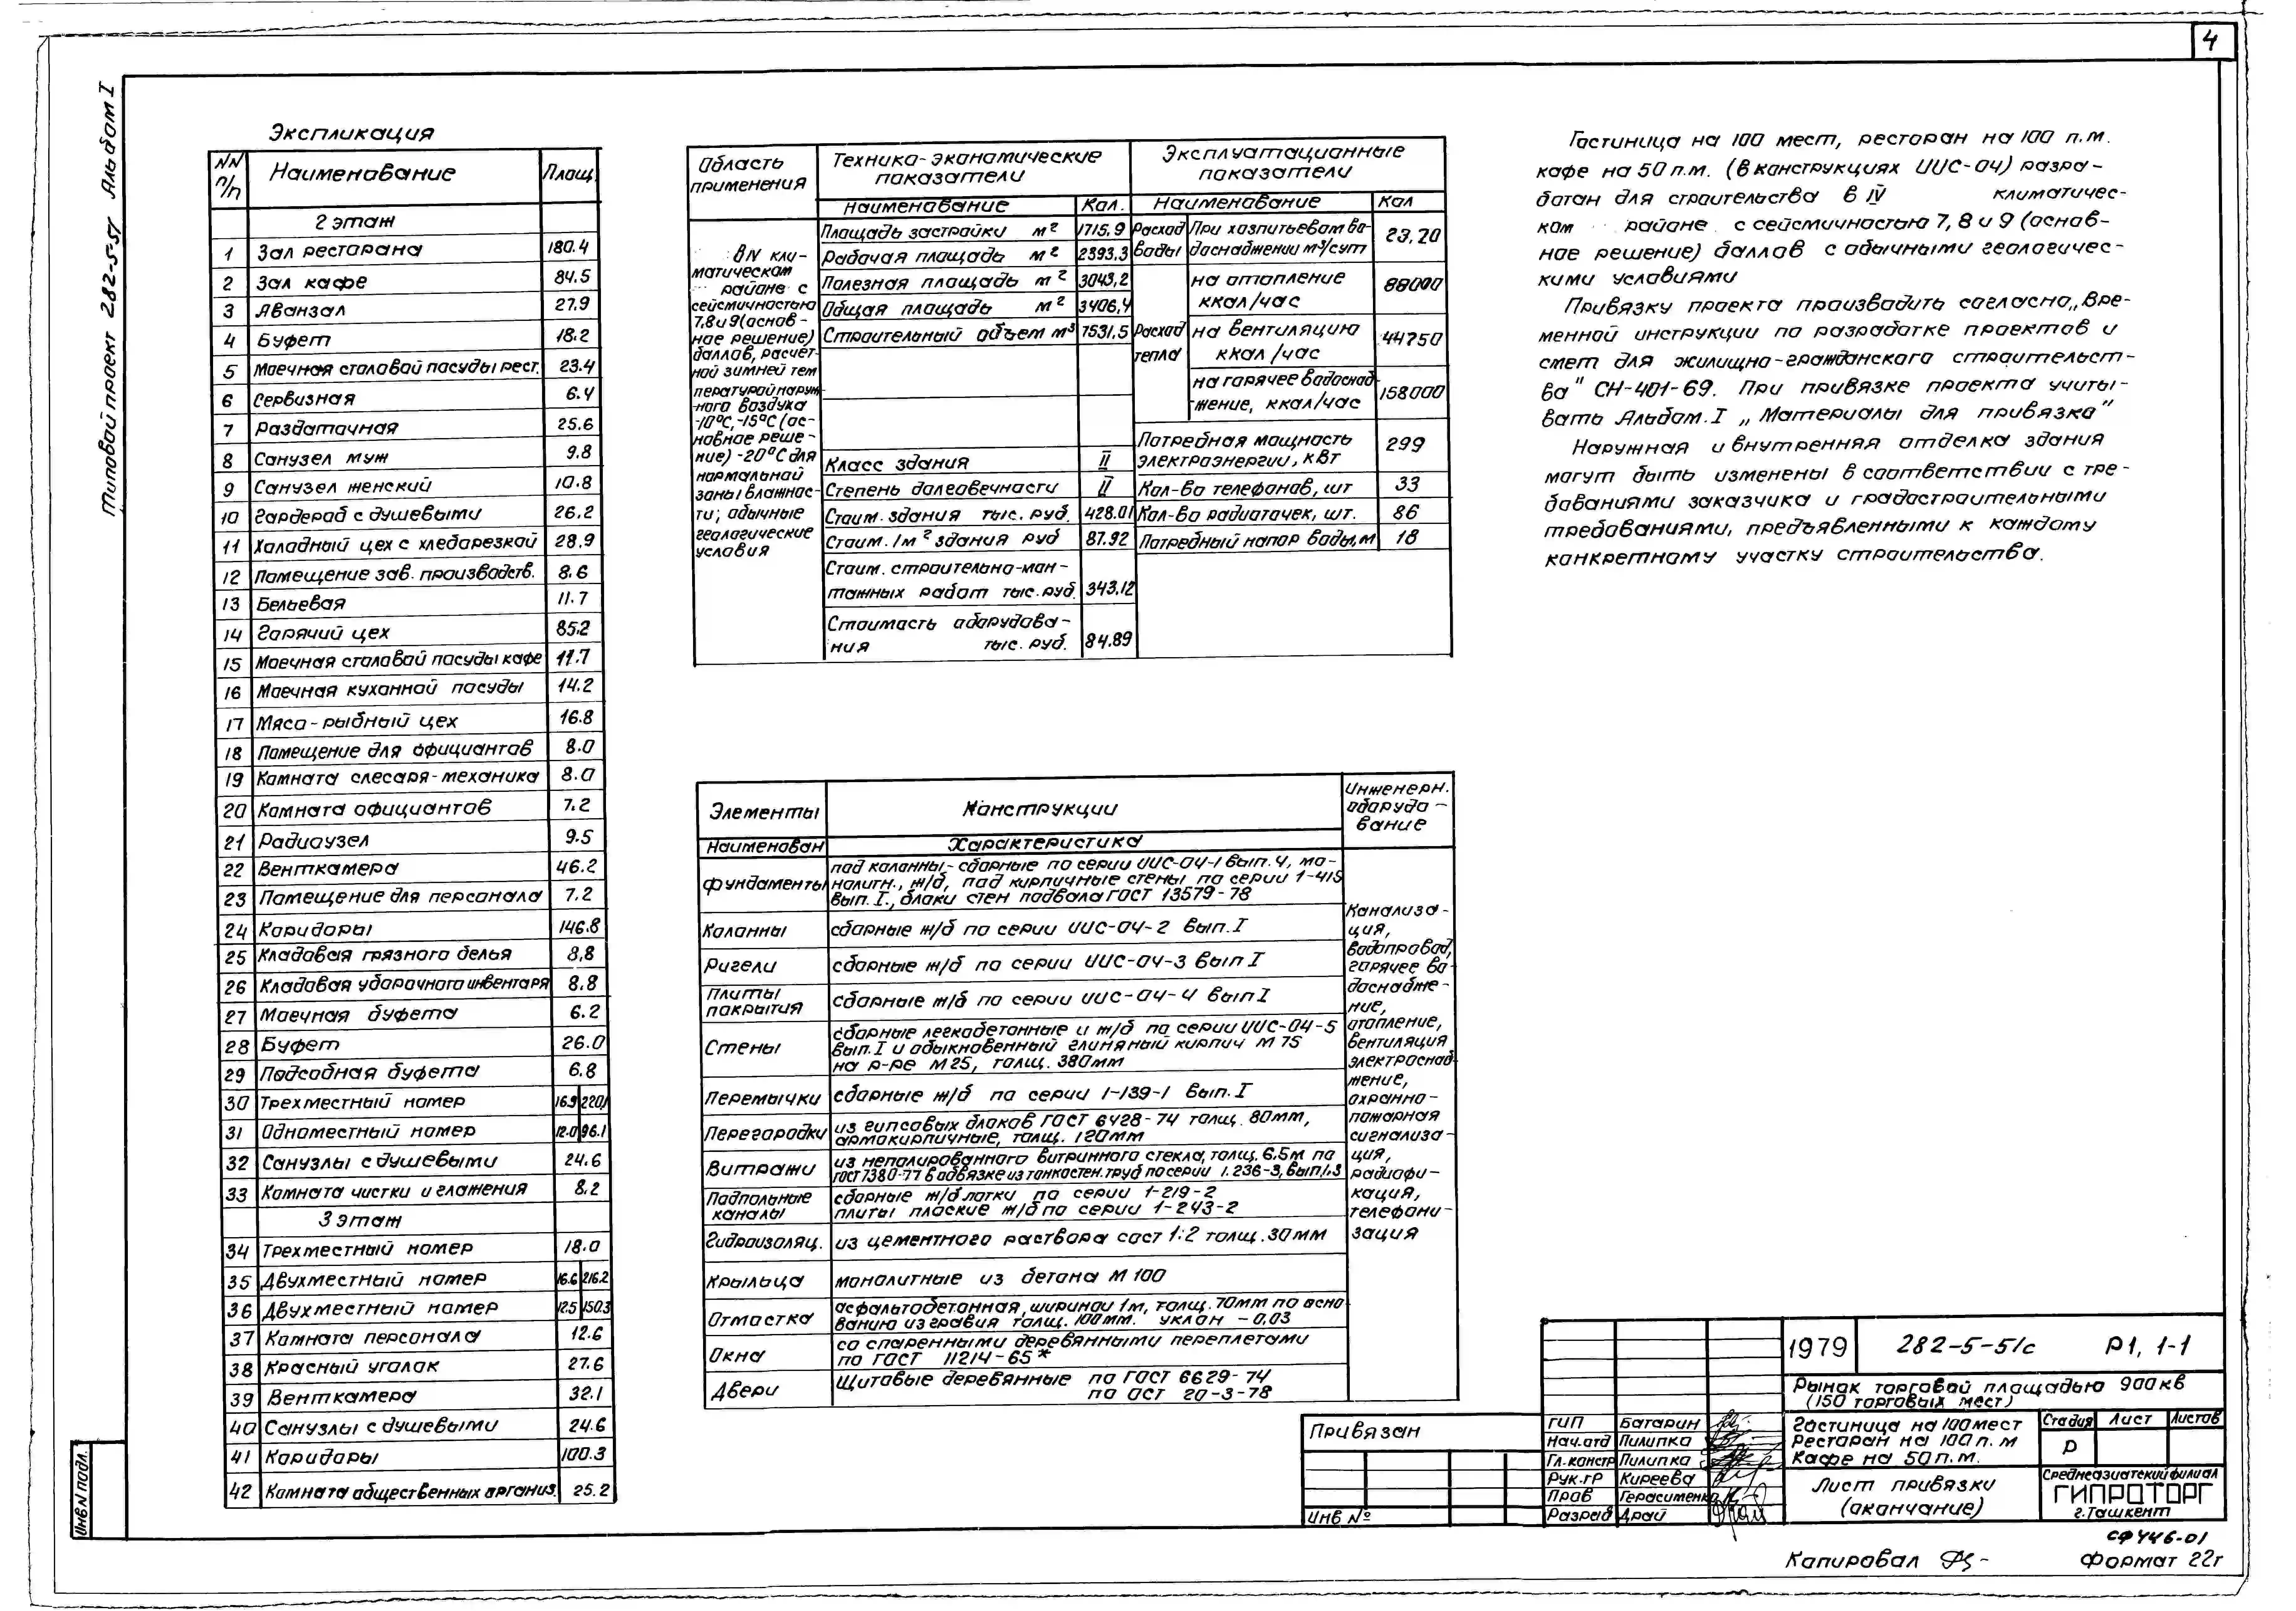 4
Типовой проект 282-5-51 Альбом I
Экспликация
NN п/п Наименование Площ.
2 этаж
1 Зал ресторана 180.4
2 Зал кафе 84.5
3 Аванзал 27.9
4 Буфет 18.2
5 Моечная столовой посуды рест. 23.4
6 Сервизная 6.4
7 Раздаточная 25.6
8 Санузел муж 9.8
9 Санузел женский 10.8
10 Гардероб с душевыми 26.2
11 Холодный цех с хлеборезкой 28.9
12 Помещение зав. производств. 8.6
13 Бельевая 11.7
14 Горячий цех 85.2
15 Моечная столовой посуды кафе 11.7
16 Моечная кухонной посуды 14.2
17 Мясо-рыбный цех 16.8
18 Помещение для официантов 8.0
19 Комната слесаря-механика 8.0
20 Комната официантов 7.2
21 Радиоузел 9.5
22 Венткамера 46.2
23 Помещение для персонала 7.2
24 Коридоры 146.8
25 Кладовая грязного белья 8,8
26 Кладовая уборочного инвентаря 8.8
27 Моечная буфета 6.2
28 Буфет 26.0
29 Подсобная буфета 6.8
30 Трехместный номер 16.9 220,1
31 Одноместный номер 12.0 96.1
32 Санузлы с душевыми 24.6
33 Комната чистки и глажения 8.2
3 этаж
34 Трехместный номер 18.0
35 Двухместный номер 16.6 216.2
36 Двухместный номер 12.5 150.3
37 Комната персонала 12.6
38 Красный уголок 27.6
39 Венткамера 32.1
40 Санузлы с душевыми 24.6
41 Коридоры 100.3
42 Комната общественных организ. 25.2
Область применения
Технико-экономические показатели
Эксплуатационные показатели
Наименование Кол. Наименование Кол
В IV кли-
матическом
районе с
сейсмичностью
7,8 и 9 (основ-
ное решение)
баллов, расчет-
ной зимней тем
пературой наруж
ного воздуха
-10°С, -15°С (ос-
новное реше-
ние) -20°С для
нормальной
зоны влажнос-
ти; обычные
геологические
условия
Площадь застройки м² 1715.9
Рабочая площадь м² 2393.3
Полезная площадь м² 3043,2
Общая площадь м² 3406,4
Строительный объем м³ 7531,5
Класс здания II
Степень долговечности II
Стоим. здания тыс. руб. 428.01
Стоим. 1м² здания руб 87.92
Стоим. строительно-мон-
тажных работ тыс. руб. 343.12
Стоимость оборудова-
ния тыс. руб. 84.89
Расход воды При хозпитьевом во-
доснабжении м³/сут 23,20
Расход тепла
на отопление ккал/час 88000
на вентиляцию ккал/час 44750
на горячее водоснаб
жение, ккал/час 158000
Потребная мощность
электроэнергии, кВт 299
Кол-во телефонов, шт 33
Кол-во радиоточек, шт. 86
Потребный напор воды, м 18
Гостиница на 100 мест, ресторан на 100 п.м.
кафе на 50 п.м. (в конструкциях ИИС-04) разра-
ботан для строительства в IV климатичес-
ком районе с сейсмичностью 7, 8 и 9 (основ-
ное решение) баллов с обычными геологичес-
кими условиями
Привязку проекта производить согласно „Вре-
менной инструкции по разработке проектов и
смет для жилищно-гражданского строительст-
ва" СН-401-69. При привязке проекта учиты-
вать Альбом.I „Материалы для привязки"
Наружная и внутренняя отделка здания
могут быть изменены в соответствии с тре-
бованиями заказчика и градостроительными
требованиями, предъявленными к каждому
конкретному участку строительства.
Элементы Конструкции
Инженерн.
оборудо-
вание
Наименован Характеристика
фундаменты
под колонны - сборные по серии ИИС-04-1 вып. 4, мо-
нолитн., ж/б, под кирпичные стены по серии 1-415
вып. I., блоки стен подвала ГОСТ 13579-78
Колонны сборные ж/б по серии ИИС-04-2 вып. I
Ригели сборные ж/б по серии ИИС-04-3 вып I
Плиты покрытия сборные ж/б по серии ИИС-04-4 вып I
Стены
сборные легкобетонные и ж/б по серии ИИС-04-5
вып. I и обыкновенный глиняный кирпич М 75
на р-ре М25, толщ. 380мм
Перемычки сборные ж/б по серии 1-139-1 вып. I
Перегородки
из гипсовых блоков ГОСТ 6428-74 толщ. 80мм,
армокирпичные, толщ. 120мм
Витражи
из неполированного витринного стекла, толщ. 6.5м по
ГОСТ 7380-77 в обвязке из тонкостен. труб по серии 1.236-3, вып. 1,3
Подпольные каналы
сборные ж/б лотки по серии 1-219-2
плиты плоские ж/б по серии 1-243-2
Гидроизоляц. из цементного раствора сост 1:2 толщ. 30мм
Крыльца монолитные из бетона М 100
Отмостка
асфальтобетонная, шириной 1м, толщ. 70мм по осно
ванию из гравия толщ. 100мм. уклон - 0,03
Окна
со спаренными деревянными переплетами
по ГОСТ 11214-65*
Двери
Щитовые деревянные по ГОСТ 6629-74
по ОСТ 20-3-78
Канализа-
ция,
водопровод,
горячее во-
доснабже-
ние,
отопление,
вентиляция
электроснаб
жение,
охранно-
пожарная
сигнализа-
ция,
радиофи-
кация,
телефони-
зация
Привязан
Инв №
Инв N подл.
1979 282-5-51с Р1, 1-1
Рынок торговой площадью 900кв
(150 торговых мест)
ГИП Батарин
Нач.отд Пилипко
Гл.констр Пилипко
Рук.гр Киреева
Пров Герасименко
Разраб Драй
Гостиница на 100 мест
Ресторан на 100 п. м
Кафе на 50 п.м.
Стадия Лист Листов
Р
Лист привязки
(окончание)
Среднеазиатский филиал
ГИПРОТОРГ
г.Ташкент
СФ 446-01
Копировал
Формат 22г